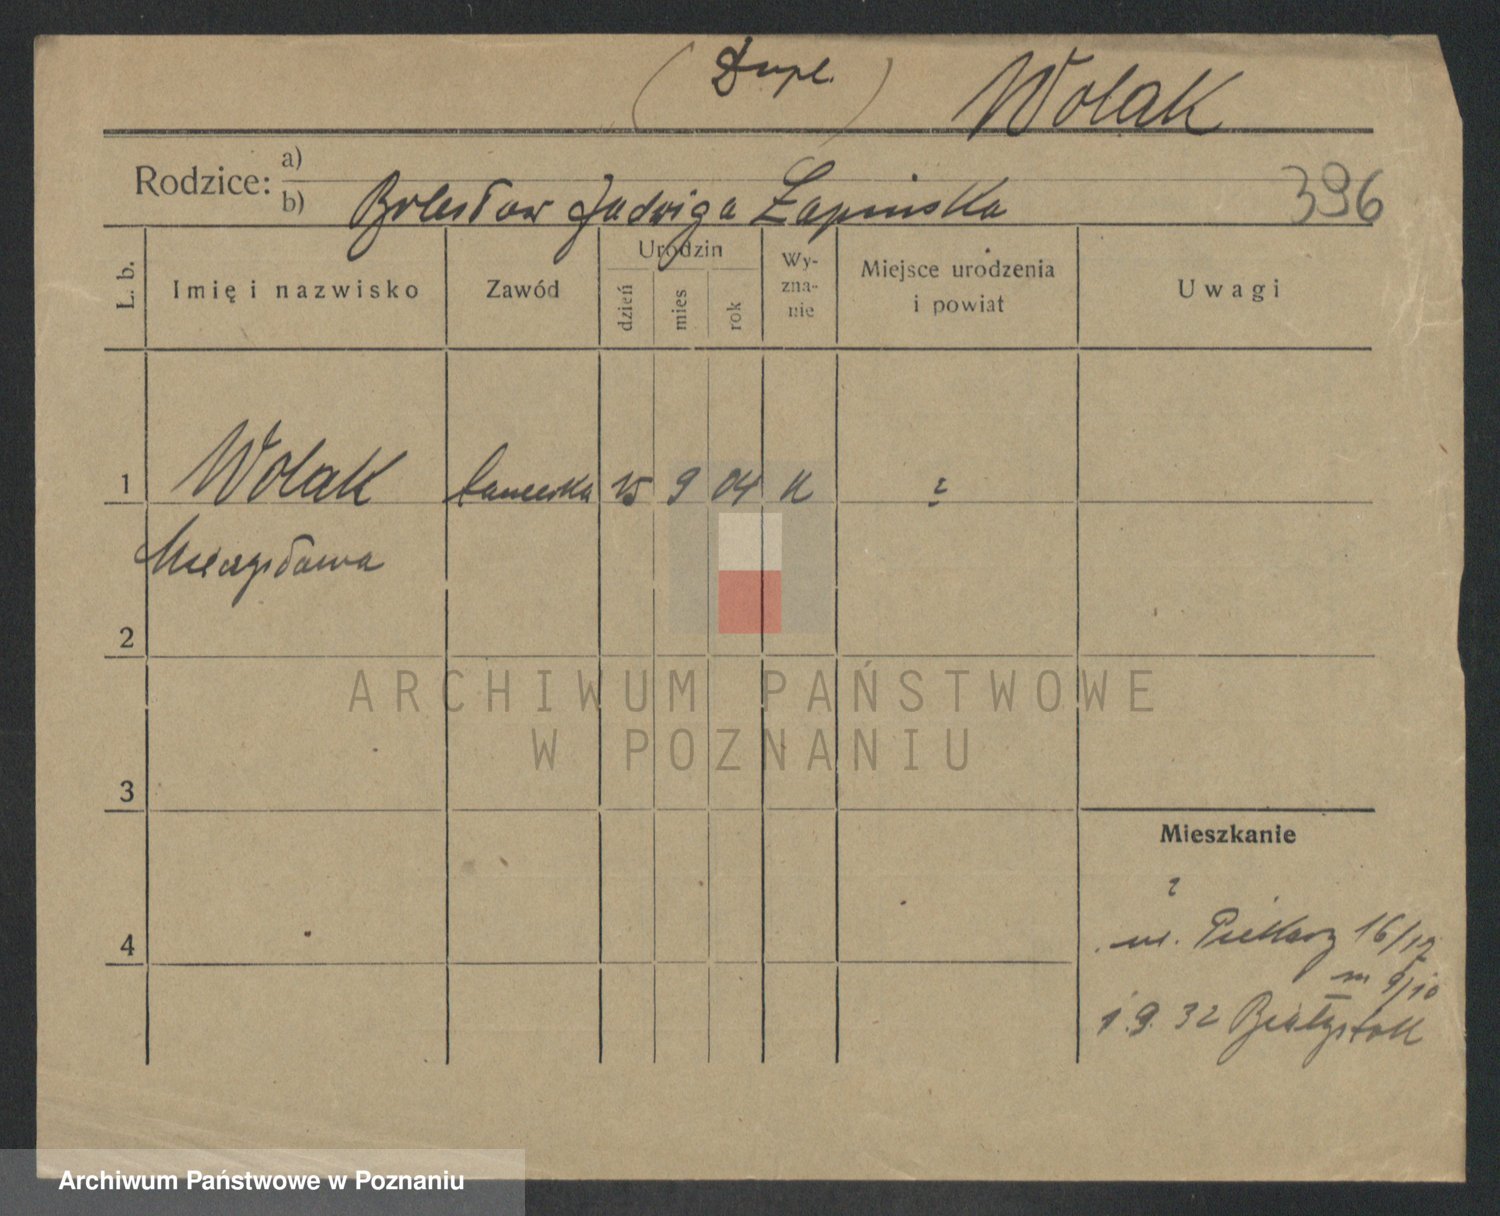 (Dupl.) Wolak
Rodzice: a)
b) Bolesław Jadwiga Łapińska 396
L. b. Imię i nazwisko Zawód Urodzin dzień mies rok Wy-zna-nie Miejsce urodzenia i powiat Uwagi
1 Wolak tancerka 15 9 04 K ?
Mieczysława
2
3
4
Mieszkanie
?
ul. Piekary 16/17
m 9/10
1.9.32 Białystok
ARCHIWUM PAŃSTWOWE
W POZNANIU
Archiwum Państwowe w Poznaniu